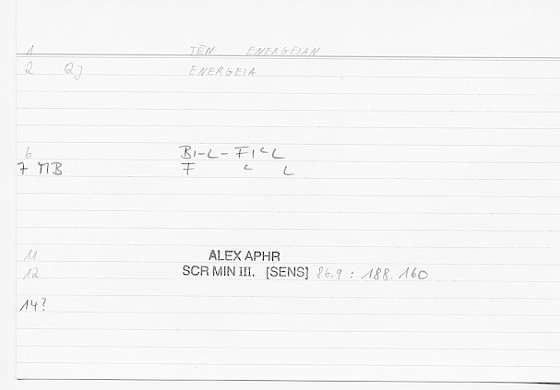 1 TĒN ENERGEIAN
2 QJ ENERGEIA
6 BI-L- FI L
7 MB F L
11 ALEX APHR
12 SCR MIN III. [SENS] 86.9 : 188.160
14?